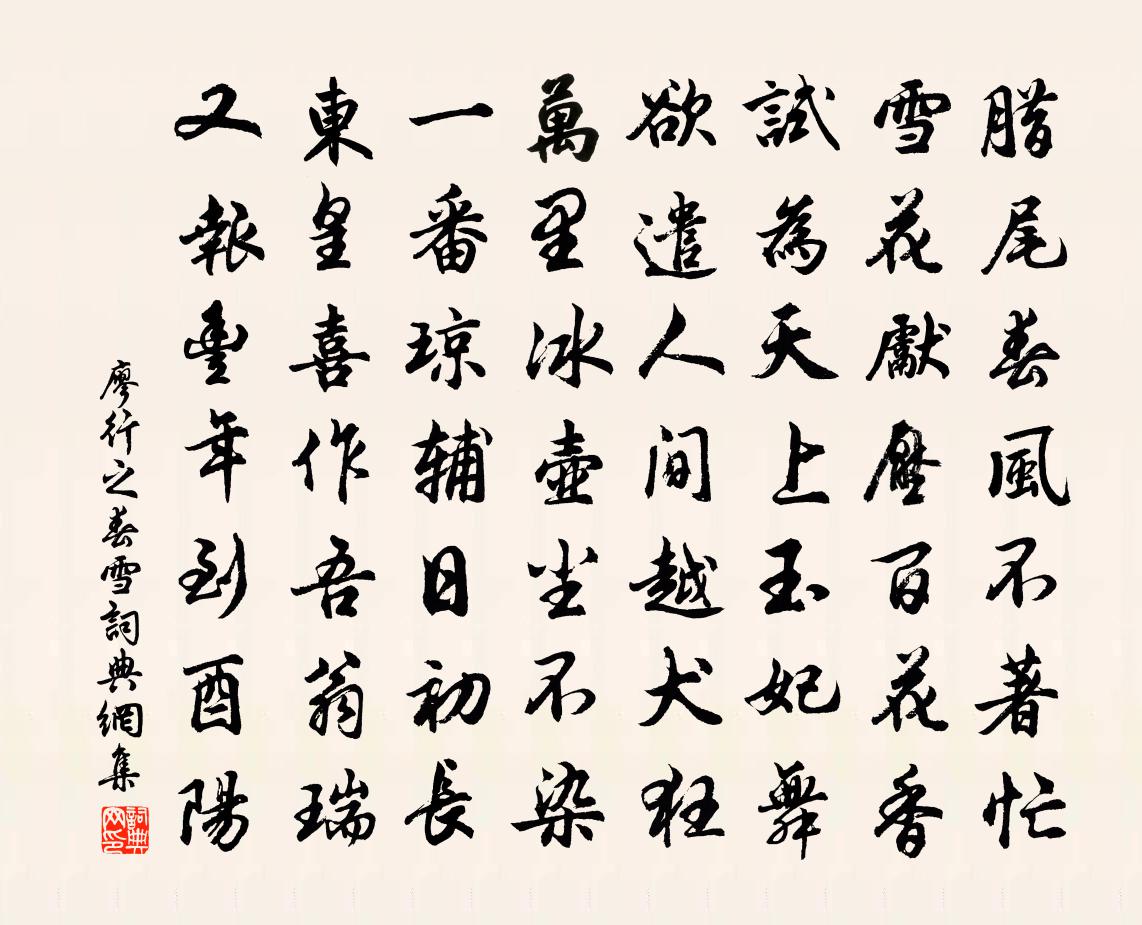 腊尾春風不著忙
雪花獻壓百花香
試為天上玉妃舞
欲遣人间越犬狂
萬里冰壺尘不染
一番琼辅日初長
東皇喜作吾翁瑞
又報豐年到酉陽
廖行之春雪詞典網集
詞典网印